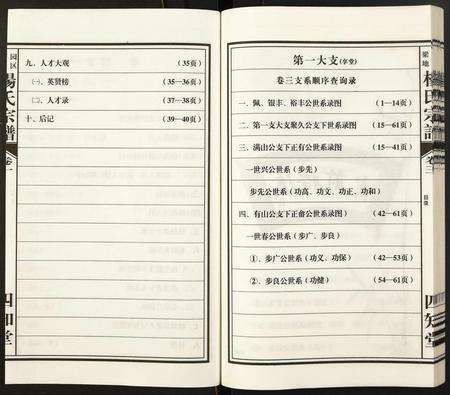 园区
楊氏宗譜
卷一
四知堂
九、人才大观 (35页)
㈠、英贤榜 (35—36页)
㈡、人才录 (37—38页)
十、后记 (39—40页)
第一大支(享堂)
卷三支系顺序查询录
一、佩、银丰、裕丰公世系录图 (1—14页)
二、第一支大支聚久公支下世系录图 (15—61页)
三、满山公支下正有公世系录图 (15—41页)
一世兴公世系 (步先)
步先公世系 (功高、功文、功正、功和)
四、有山公支下正侖公世系录图) (42—61页)
一世春公世系 (步广、步良)
①、步广公世系 (功义、功保) (42—53页)
②、步良公世系 (功健) (54—61页)
梁地
楊氏宗譜
卷三
目录
四知堂